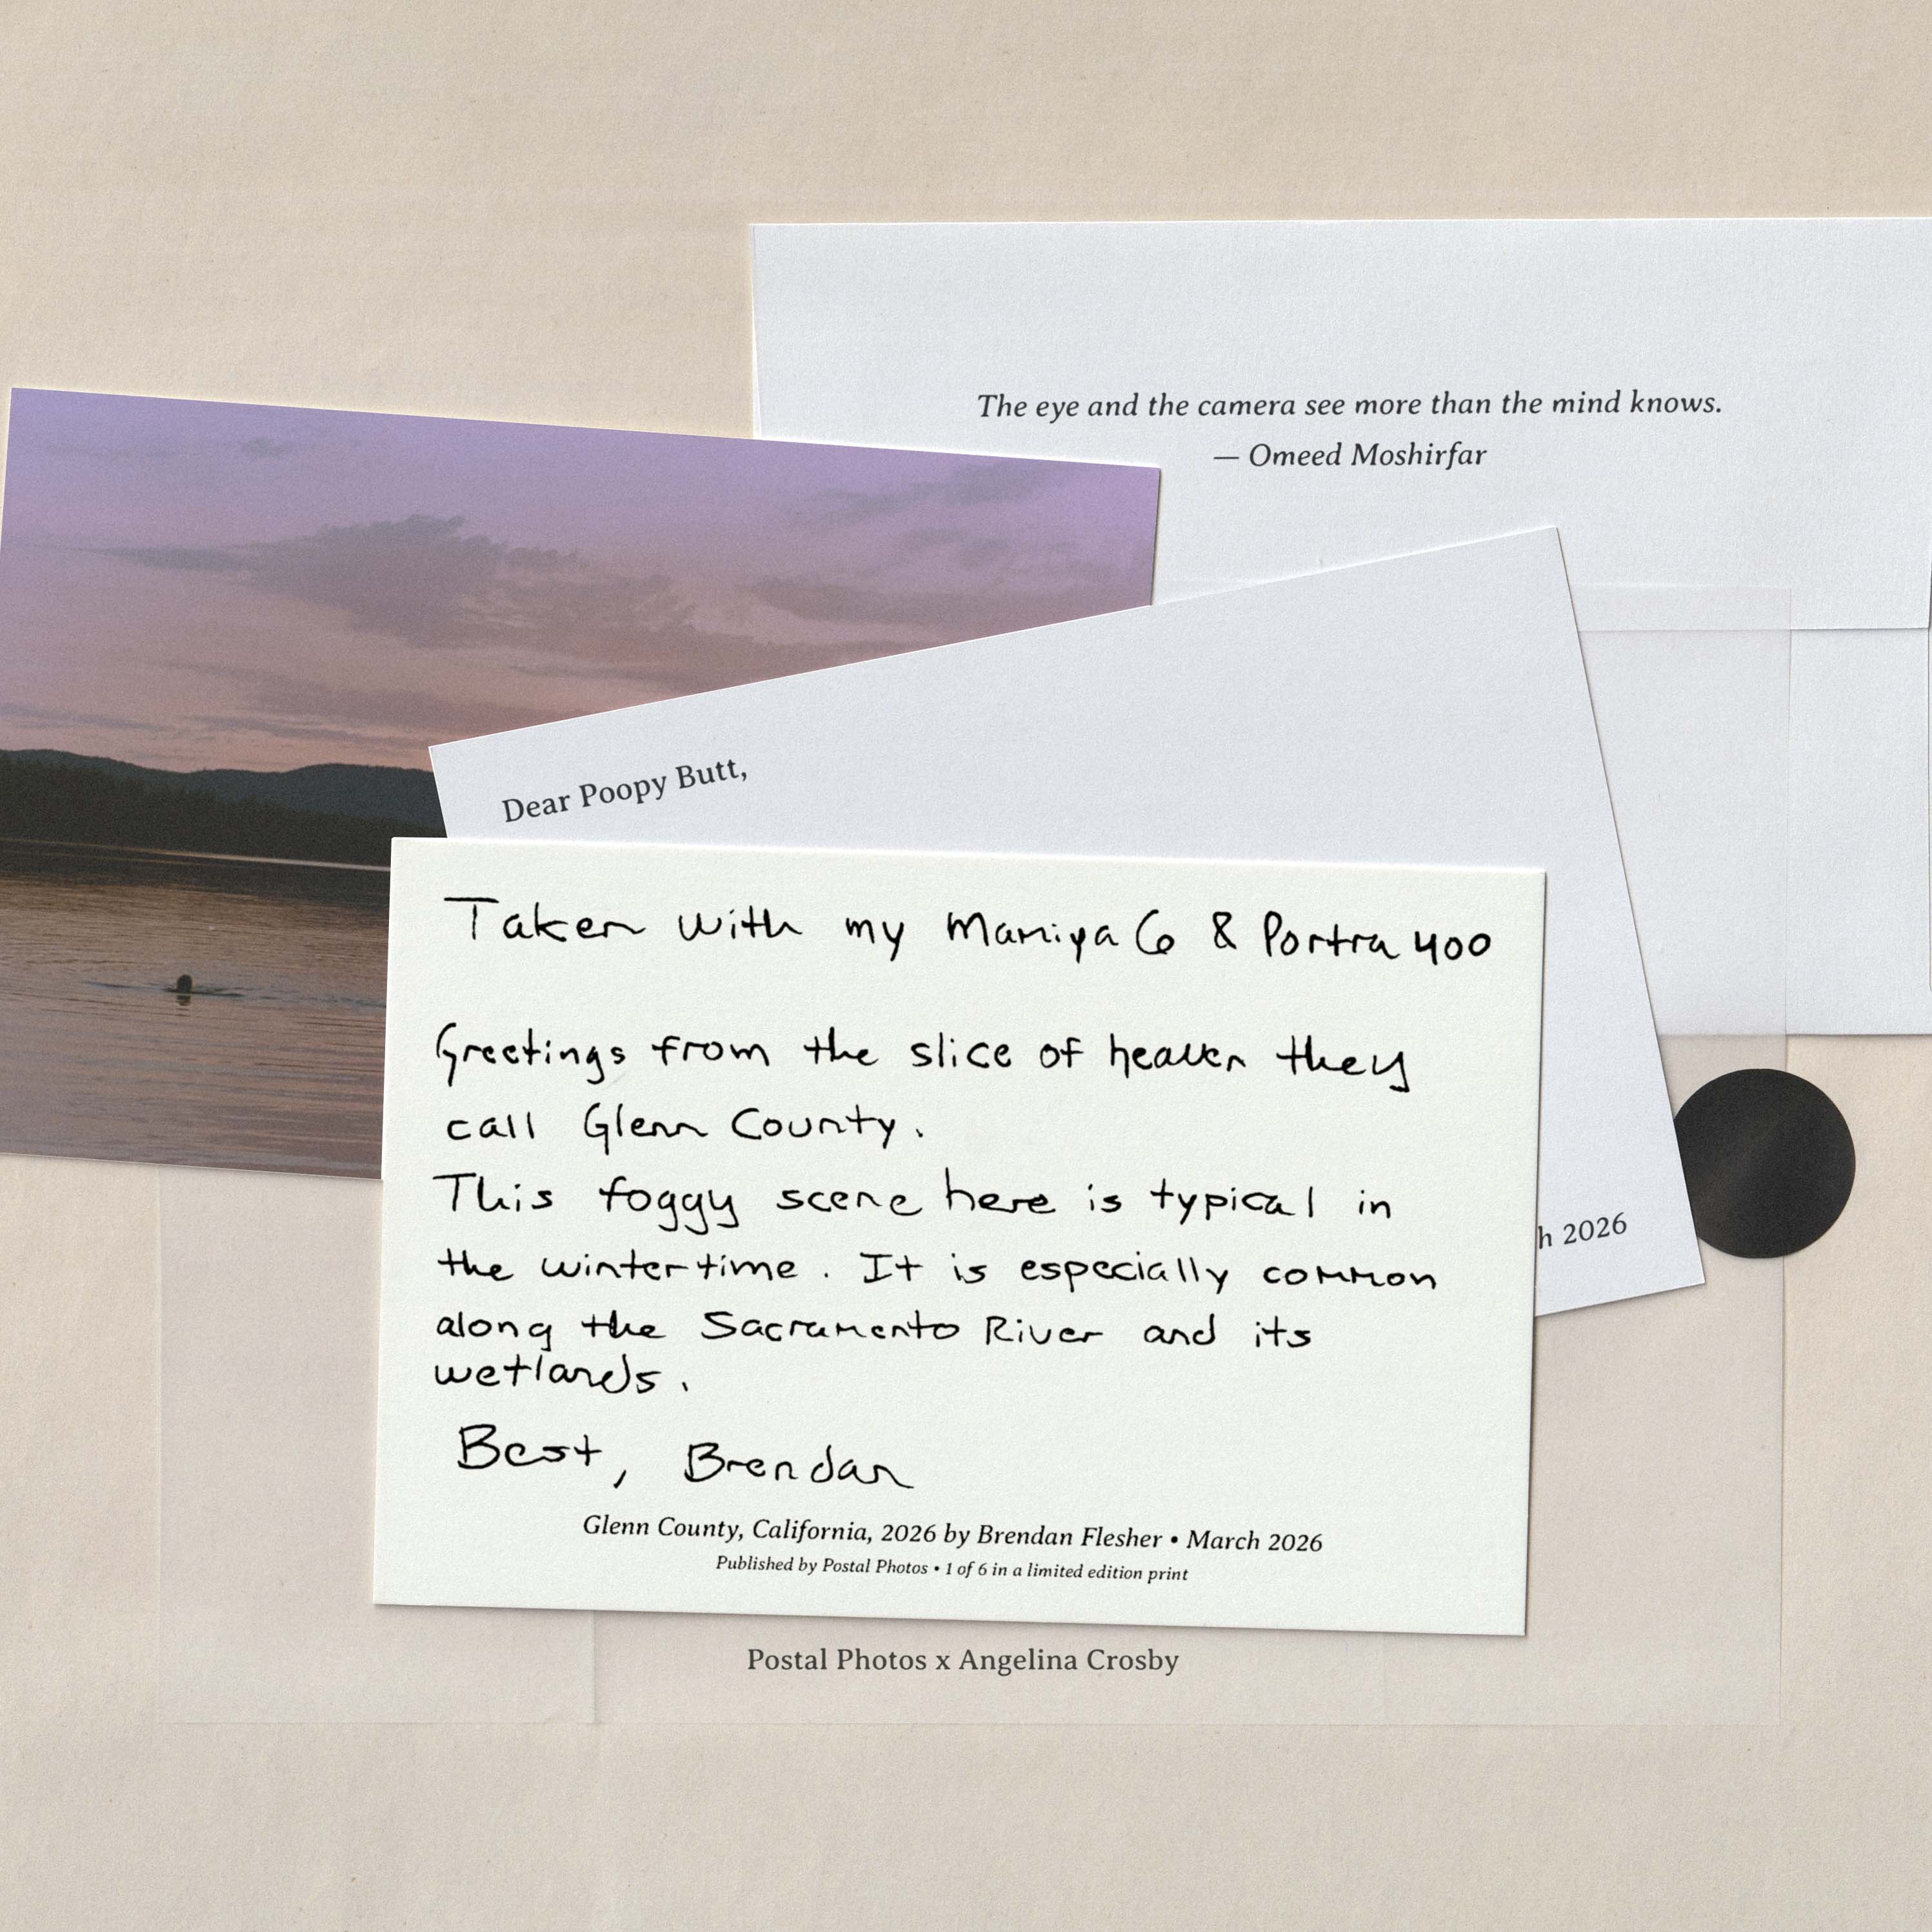 The eye and the camera see more than the mind knows.
— Omeed Moshirfar
Dear Poopy Butt,
h 2026
Taken with my Mamiya 6 & Portra 400
Greetings from the slice of heaven they
call Glenn County.
This foggy scene here is typical in
the wintertime. It is especially common
along the Sacramento River and its
wetlands.
Best, Brendan
Glenn County, California, 2026 by Brendan Flesher • March 2026
Published by Postal Photos • 1 of 6 in a limited edition print
Postal Photos x Angelina Crosby